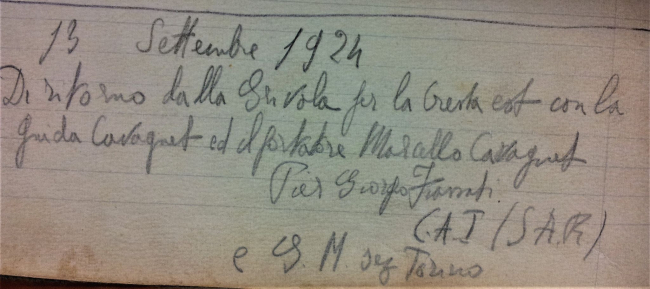 13 Settembre 1924
Di ritorno dalla Grivola per la Cresta est con la
guida Cavagnet ed il portatore Marcello Cavagnet
Pier Giorgio Frassati
C.A.I (S.A.R)
e G. M. sez Torino